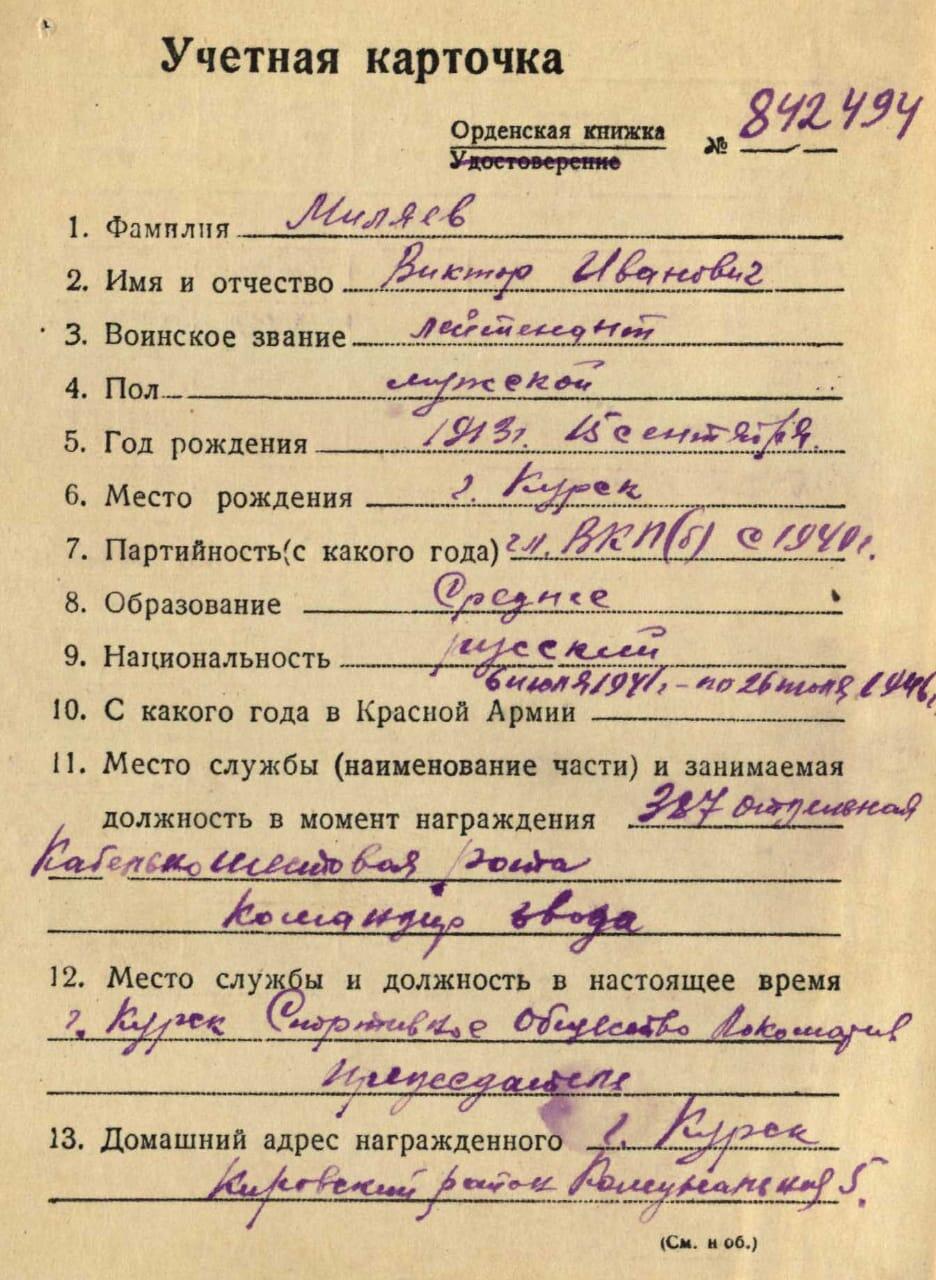 Учетная карточка
Орденская книжка № 842494
Удостоверение
1. Фамилия Миляев
2. Имя и отчество Виктор Иванович
3. Воинское звание лейтенант
4. Пол мужской
5. Год рождения 1913г. 15 сентября.
6. Место рождения г. Курск
7. Партийность(с какого года) чл. ВКП(б) с 1940г.
8. Образование Среднее
9. Национальность русский
6 июля 1941г. - по 26 июля 1946г.
10. С какого года в Красной Армии
11. Место службы (наименование части) и занимаемая
должность в момент награждения 387 отдельная
Кабельно шестовая рота
командир взвода
12. Место службы и должность в настоящее время
г. Курск Спортивное Общество Локомотив
председатель
13. Домашний адрес награжденного г. Курск
Кировский район 5.
(См. н об.)